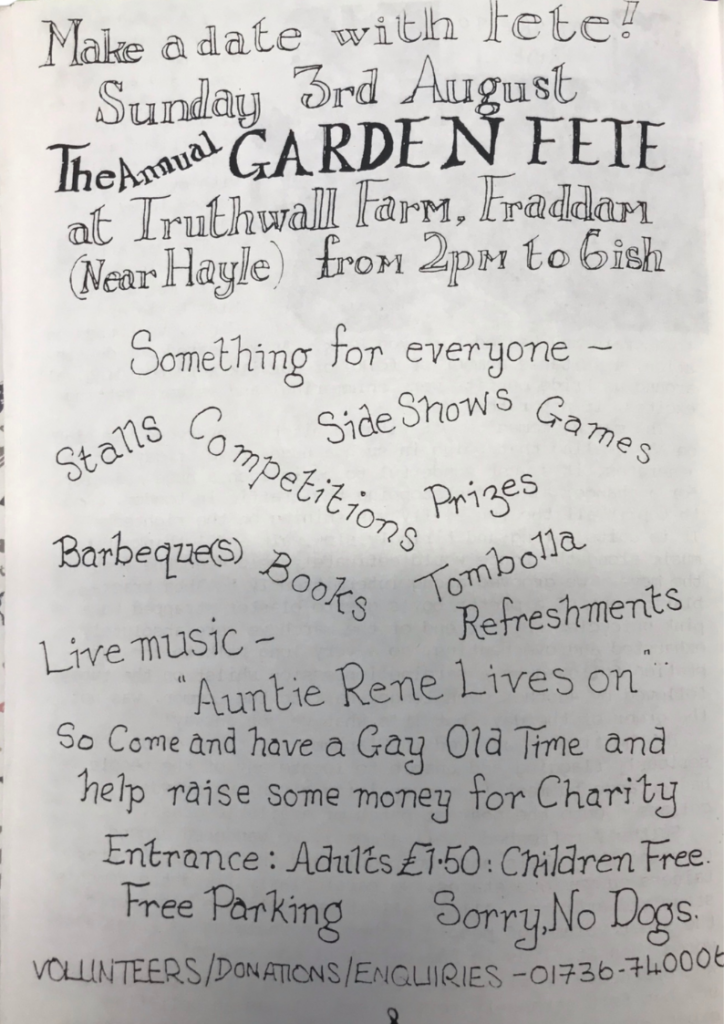 Make a date with Fete!
Sunday 3rd August
The Annual GARDEN FETE
at Truthwall Farm, Fraddam
(Near Hayle) from 2pm to 6ish
Something for everyone -
Stalls Competitions Side Shows Games
Prizes
Barbeque(s) Books Tombolla
Refreshments
Live music -
"Auntie Rene Lives on"
So Come and have a Gay Old Time and
help raise some money for Charity
Entrance: Adults £1·50: Children Free.
Free Parking Sorry, No Dogs.
VOLUNTEERS/DONATIONS/ENQUIRIES - 01736-740006
8